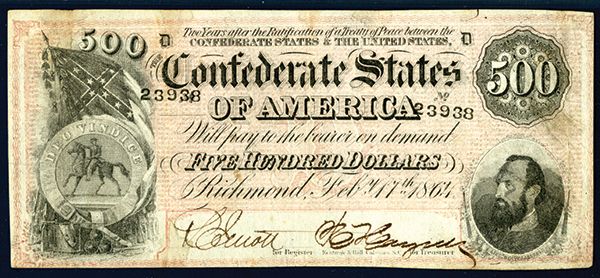 Two Years after the Ratification of a Treaty of Peace between the
CONFEDERATE STATES & THE UNITED STATES,
500 D D
Confederate States
500
23938 No 23938
OF AMERICA
Will pay to the bearer on demand
DEO VINDICE
FIVE HUNDRED DOLLARS
Richmond, Feby. 17th. 1864.
for Register for Treasurer